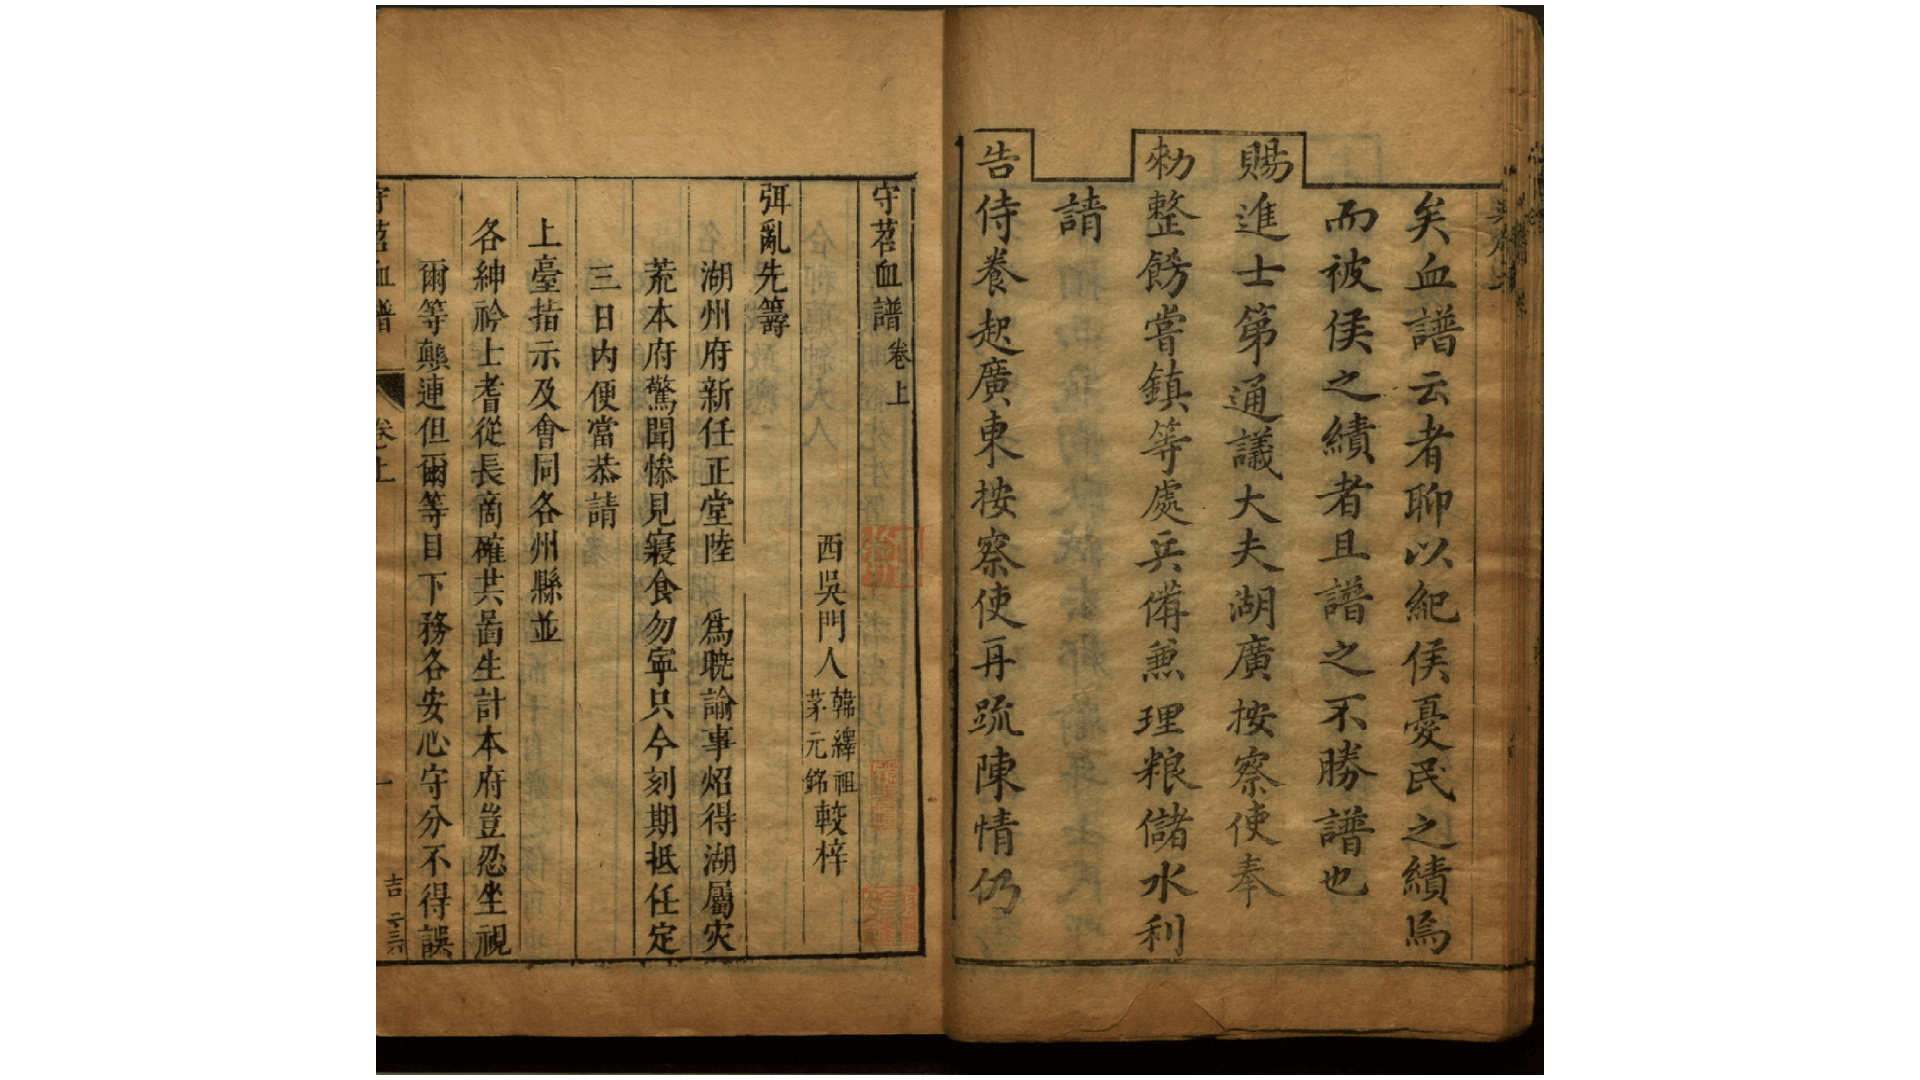 矣血譜云者聊以紀侯憂民之績焉
而被侯之績者且譜之不勝譜也
賜進士第通議大夫湖廣按察使奉
勑整飭嘗鎮等處兵備兼理粮儲水利
請
告侍養起廣東按察使再疏陳情仍
守苕血譜卷上
西吳門人韓繹祖茅元銘較梓
弭亂先籌
湖州府新任正堂陸 爲曉諭事炤得湖屬灾
荒本府驚聞慘見寢食勿寧只今刻期抵任定
三日内便當恭請
上臺指示及會同各州縣並
各紳衿士耆從長商確共啚生計本府豈忍坐視
爾等顛連但爾等目下務各安心守分不得誤
守苕血譜 卷上 一